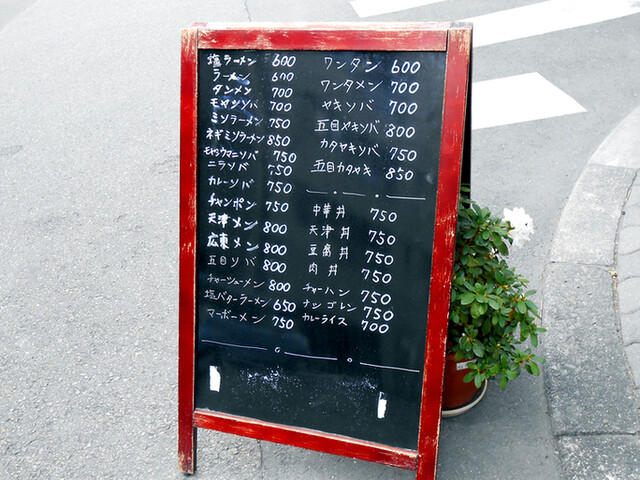 塩ラーメン 600
ラーメン 600
タンメン 700
モヤシソバ 700
ミソラーメン 750
ネギミソラーメン 850
モヤシウマニソバ 750
ニラソバ 750
カレーソバ 750
チャンポン 750
天津メン 800
広東メン 800
五目ソバ 800
チャーシューメン 800
塩バターラーメン 650
マーボーメン 750
ワンタン 600
ワンタメン 700
ヤキソバ 700
五目ヤキソバ 800
カタヤキソバ 750
五目カタヤキ 850
中華丼 750
天津丼 750
豆腐丼 750
肉丼 750
チャーハン 750
ナシゴレン 750
カレーライス 700